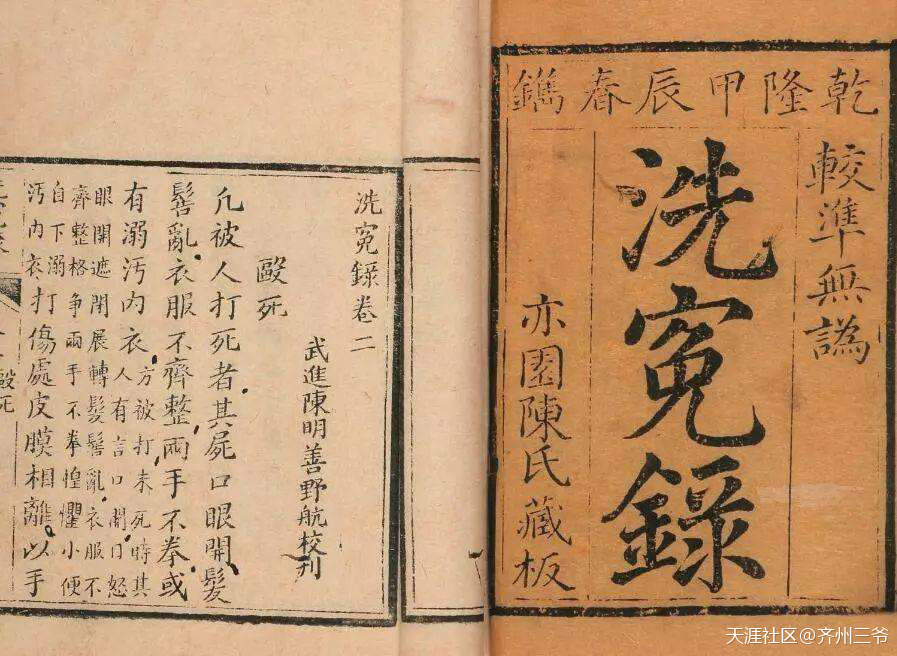 乾隆甲辰春鐫
較準無譌
洗冤錄
亦園陳氏藏板
洗冤錄卷二
武進陳明善野航校刊
毆死
凡被人打死者其屍口眼開髮
髻亂衣服不齊整兩手不拳或
有溺汚內衣
方被打未死時其
人有言口開曰怒
眼開遮閉展轉髮髻亂衣服不
齊整格爭兩手不拳惶懼小便
自下溺
汚內衣
打傷處皮膜相離以手
毆死
天涯社区@齐州三爷